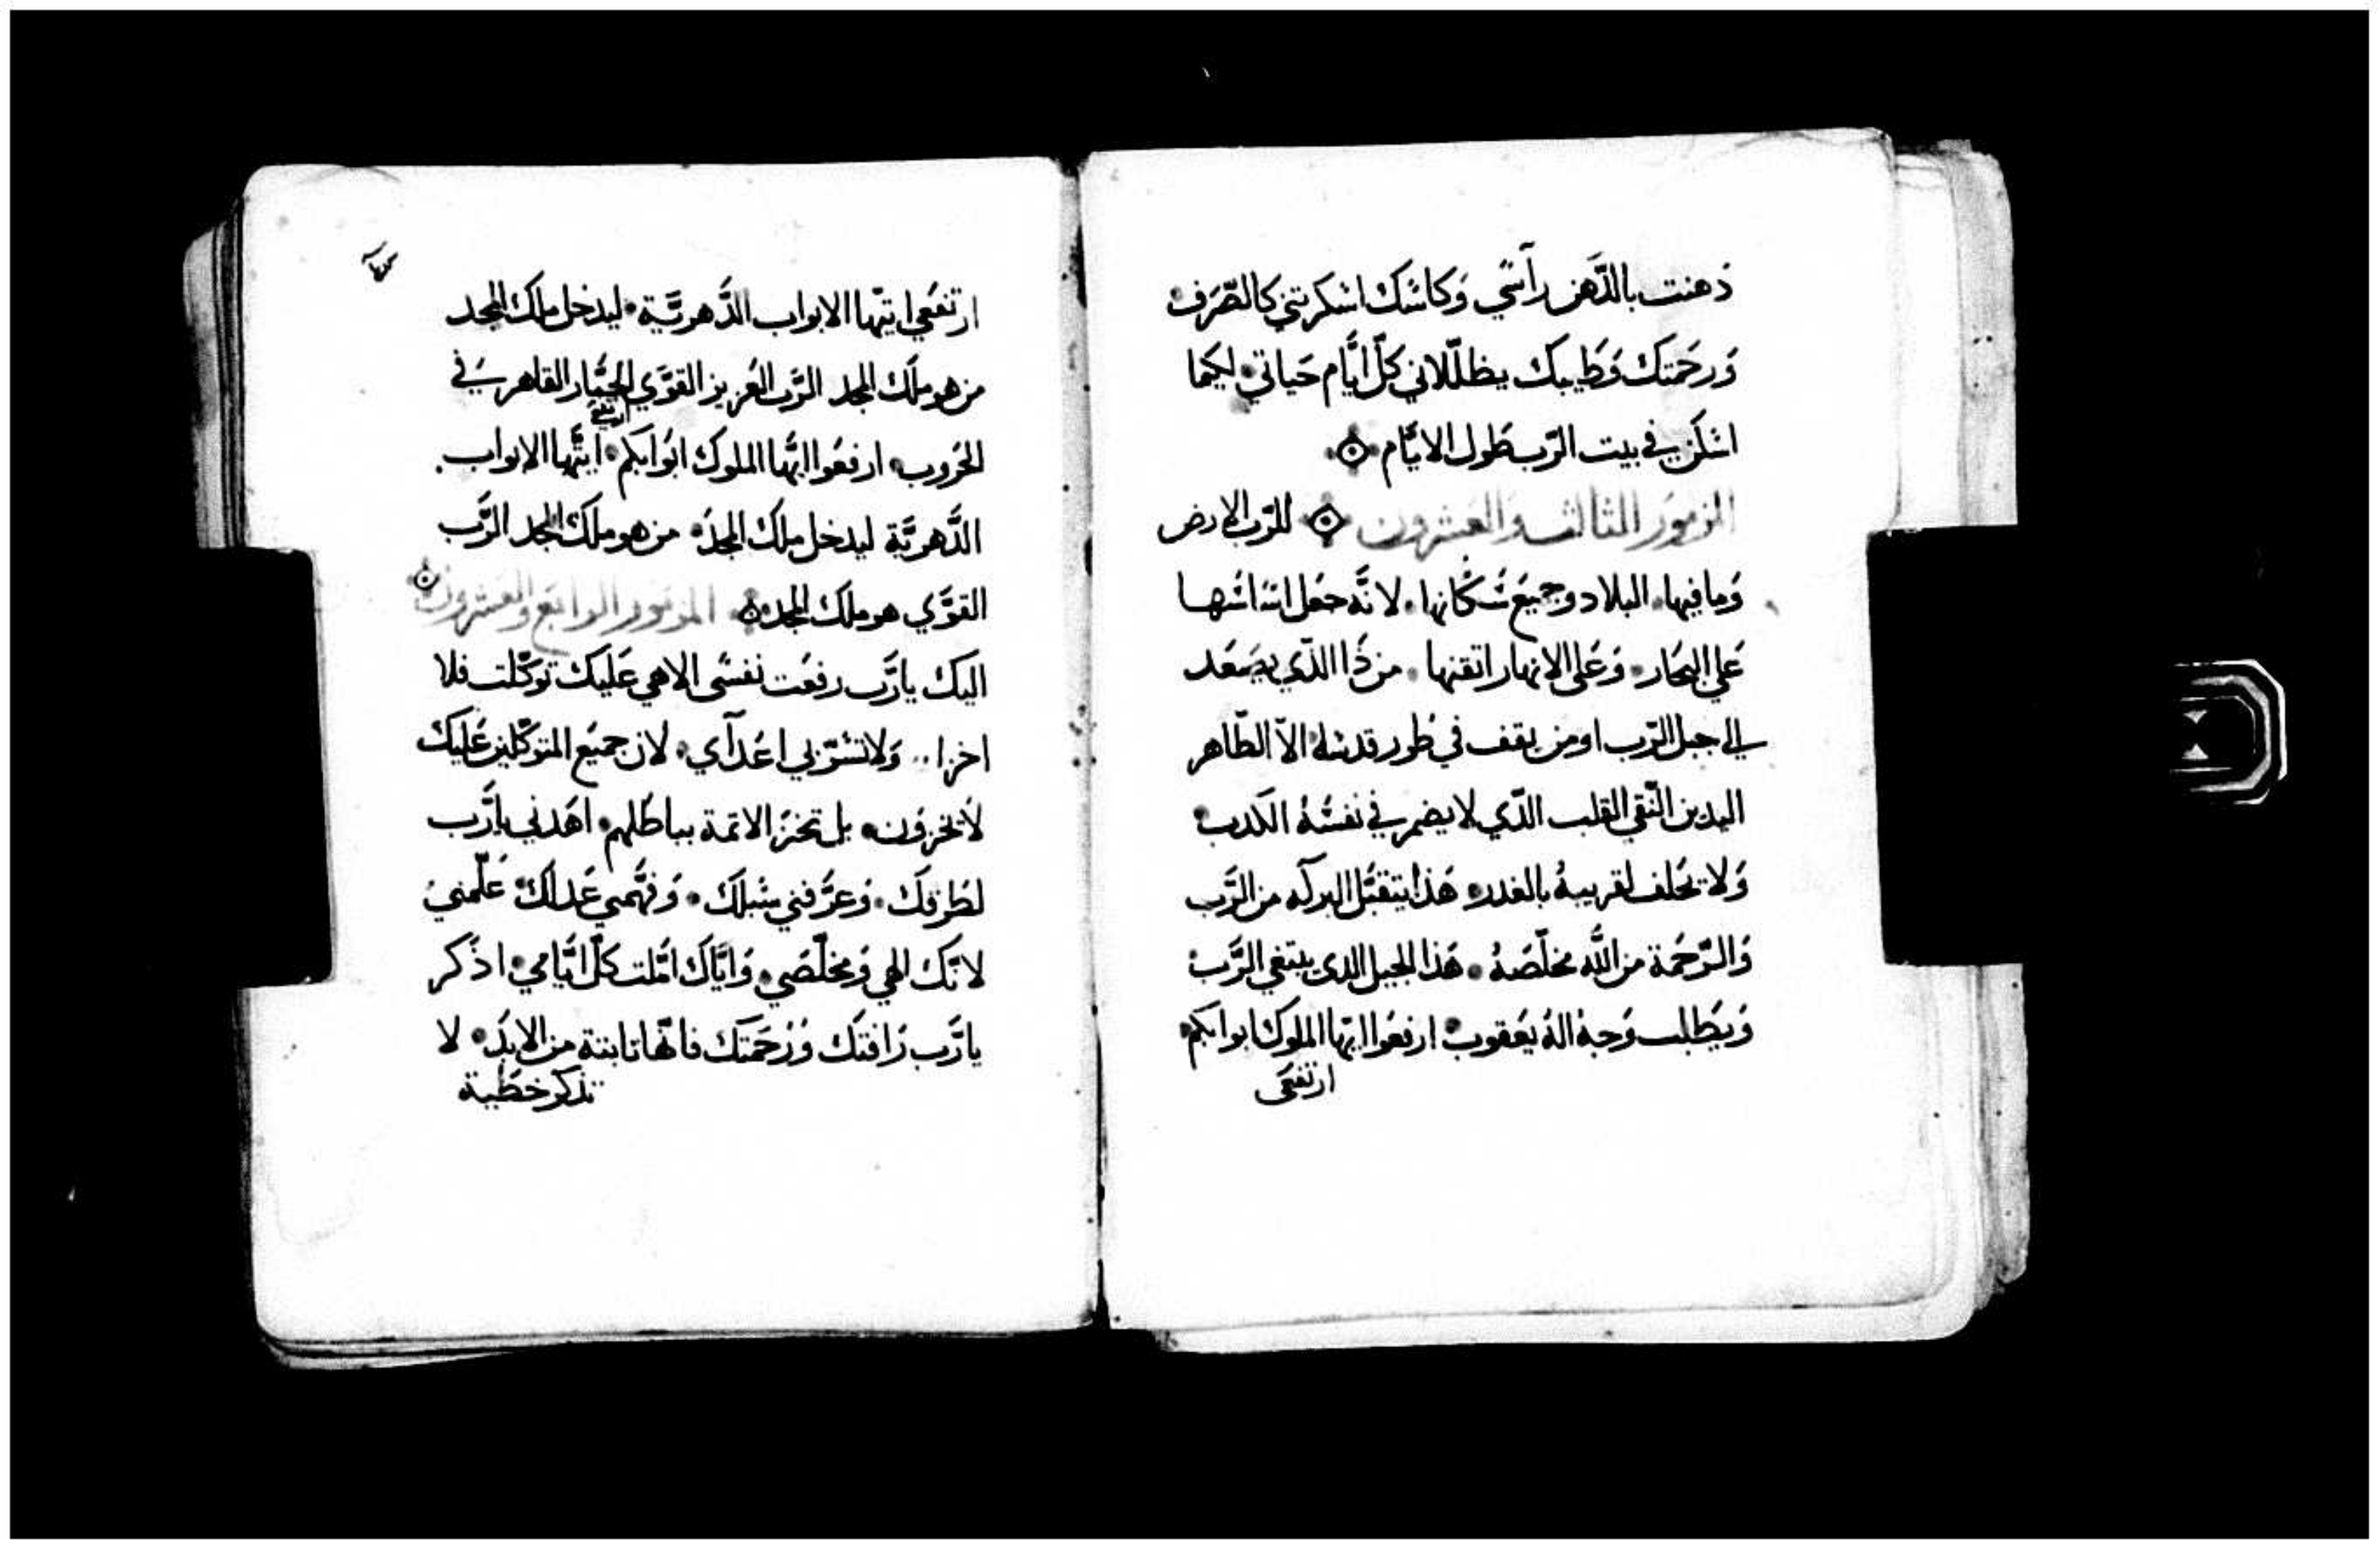 دهنت بالدّهن رآسي وَكاسَك اسْكرتني كالصَّرَف
وَرحَمتَك وَطيبك يظلّلاني كلّ ايَّام حَياتي لكيما
اسْكن في بيت الرّب طَول الايَّام
المزمور الثالث والعشرون للرّب الارض
وَما فيها البلاد وجميع سُكّانها لانَّه جعَل اسَاسَها
عَلي البحَار وَعَلى الانهار اتقنها من ذَا الذّي يصَعَد
الي جبل الرّب اومن يقف في طور قدسه الاّ الطّاهر
اليدين النّقي القلب الذّي لا يضمر في نفسَهُ الكدب
وَلا يحَلف لقريبهُ بالغدر هَذا يتقبَّل البركه من الرَّب
وَالرّحَمَة من اللّه مخلّصَهُ هَذا الجيل الدي يبتغي الرَّب
وَيطَلب وَجهَ الهُ يَعَقوب ارفعَوا ايّها الملوك ابوابكم
ارتفعَى
ارتفعَي ايتّها الابواب الدَّهريَّة ليدخل ملك المجد
من هو ملَك المجد الرَّب العَزيز القوَّي الجبَّار القاهر في
الحَروب ارفعَوا ايّها الملوك ابوَابكم ارتفعي ايتَّها الابواب
الدَّهريَّة ليدخل ملك المجدَ من هو ملَك المجد الرَّب
القوَّي هو ملك المجد المزمور الرابع والعشرون
اليَك يارَّب رفعَت نفسَى الاهي عَليَك توكّلت فلا
اخزا وَلا تشمّت بي اعَدآي لان جميَع المتوكّلين عَليك
لا يخزوَن بل تخزَ الاتمة بباطَلهم اهَدني يارَّب
لطَرقك وَعرَّفني سَبلك وَفهَّمني عَدلك عَلّمني
لانّك الهي وَمخلّصَي وَايَّاك امَّلت كلّ ايَّامي اذكر
يارَّب رَافتَك وَرَحَمَتك فانّها تابتة من الابدَ لا
تذكر خطَية